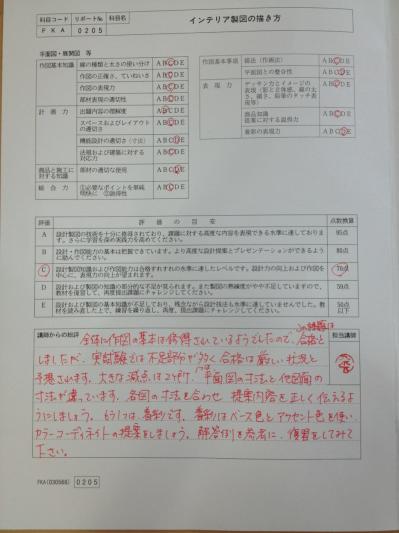 科目コード リポートNo. 科目名
FKA 0205 インテリア製図の描き方
平面図・展開図 等
作図基本知識 線の種類と太さの使い分け ABCDE
作図の正確さ、ていねいさ ABCDE
作図の表現力 ABCDE
部材表現の適切性 ABCDE
計画力 出題内容の理解度 ABCDE
スペースおよびレイアウトの適切さ ABCDE
機能設計の適切さ(寸法) ABCDE
法規および建築に対する対応力 ABCDE
商品と施工に対する知識 部材の適切な使用 ABCDE
総合力 ①必要なポイントを単純明快に ②説得性 ABCDE
作図基本事項 描法(作画法) ABCDE
平面図との整合性 ABCDE
表現力 デッサン力とイメージの表現(形と立体感、線の太さ、細さ、鉛筆のタッチ表現等) ABCDE
商品知識 提案に対する説得力 ABCDE
着彩の表現力 ABCDE
評価 評価の目安 点数換算
A 設計製図の技術を十分に修得されており、課題に対する高度な内容を表現できる水準に達しております。さらに学習を深め実践力を高めてください。 95点
B 設計・作図能力の基本は把握できています。より高度な設計提案とプレゼンテーションができるように励んでください。 80点
C 設計製図知識および作図能力は合格すれすれの水準に達したレベルです。設計力の向上および作図を中心に、表現力の向上が望まれます。 70点
D 設計および製図の知識の部分的な不足が見られます。また製図の熟練度がやや不足していますので、教材を復習して、再度提出課題にチャレンジしてください。 59点
E 設計および製図の基本知識が不足しており、残念ながら設計技法も水準に達していませんでした。教材を読み直した上で、練習を繰り返し、再度、提出課題にチャレンジしてください。 50点以下
講師からの短評 担当講師
全体に作図の基本は修得されているようでしたので、この課題は合格と
しましたが、実試験では不足部分が多く合格は厳しい状況と
予想されます。大きな減点は2ヶ所け、1つは平面図の寸法と他図面の
寸法が違っています。各図の寸法を合わせ、提案内容を正しく伝えるよ
うにしましょう。もう1つは着彩です。着彩はベース色とアクセント色を使い、
カラーコーディネイトの提案をしましょう。解答例を参考に、復習をしてみて
下さい。
FKA(030566) 0205